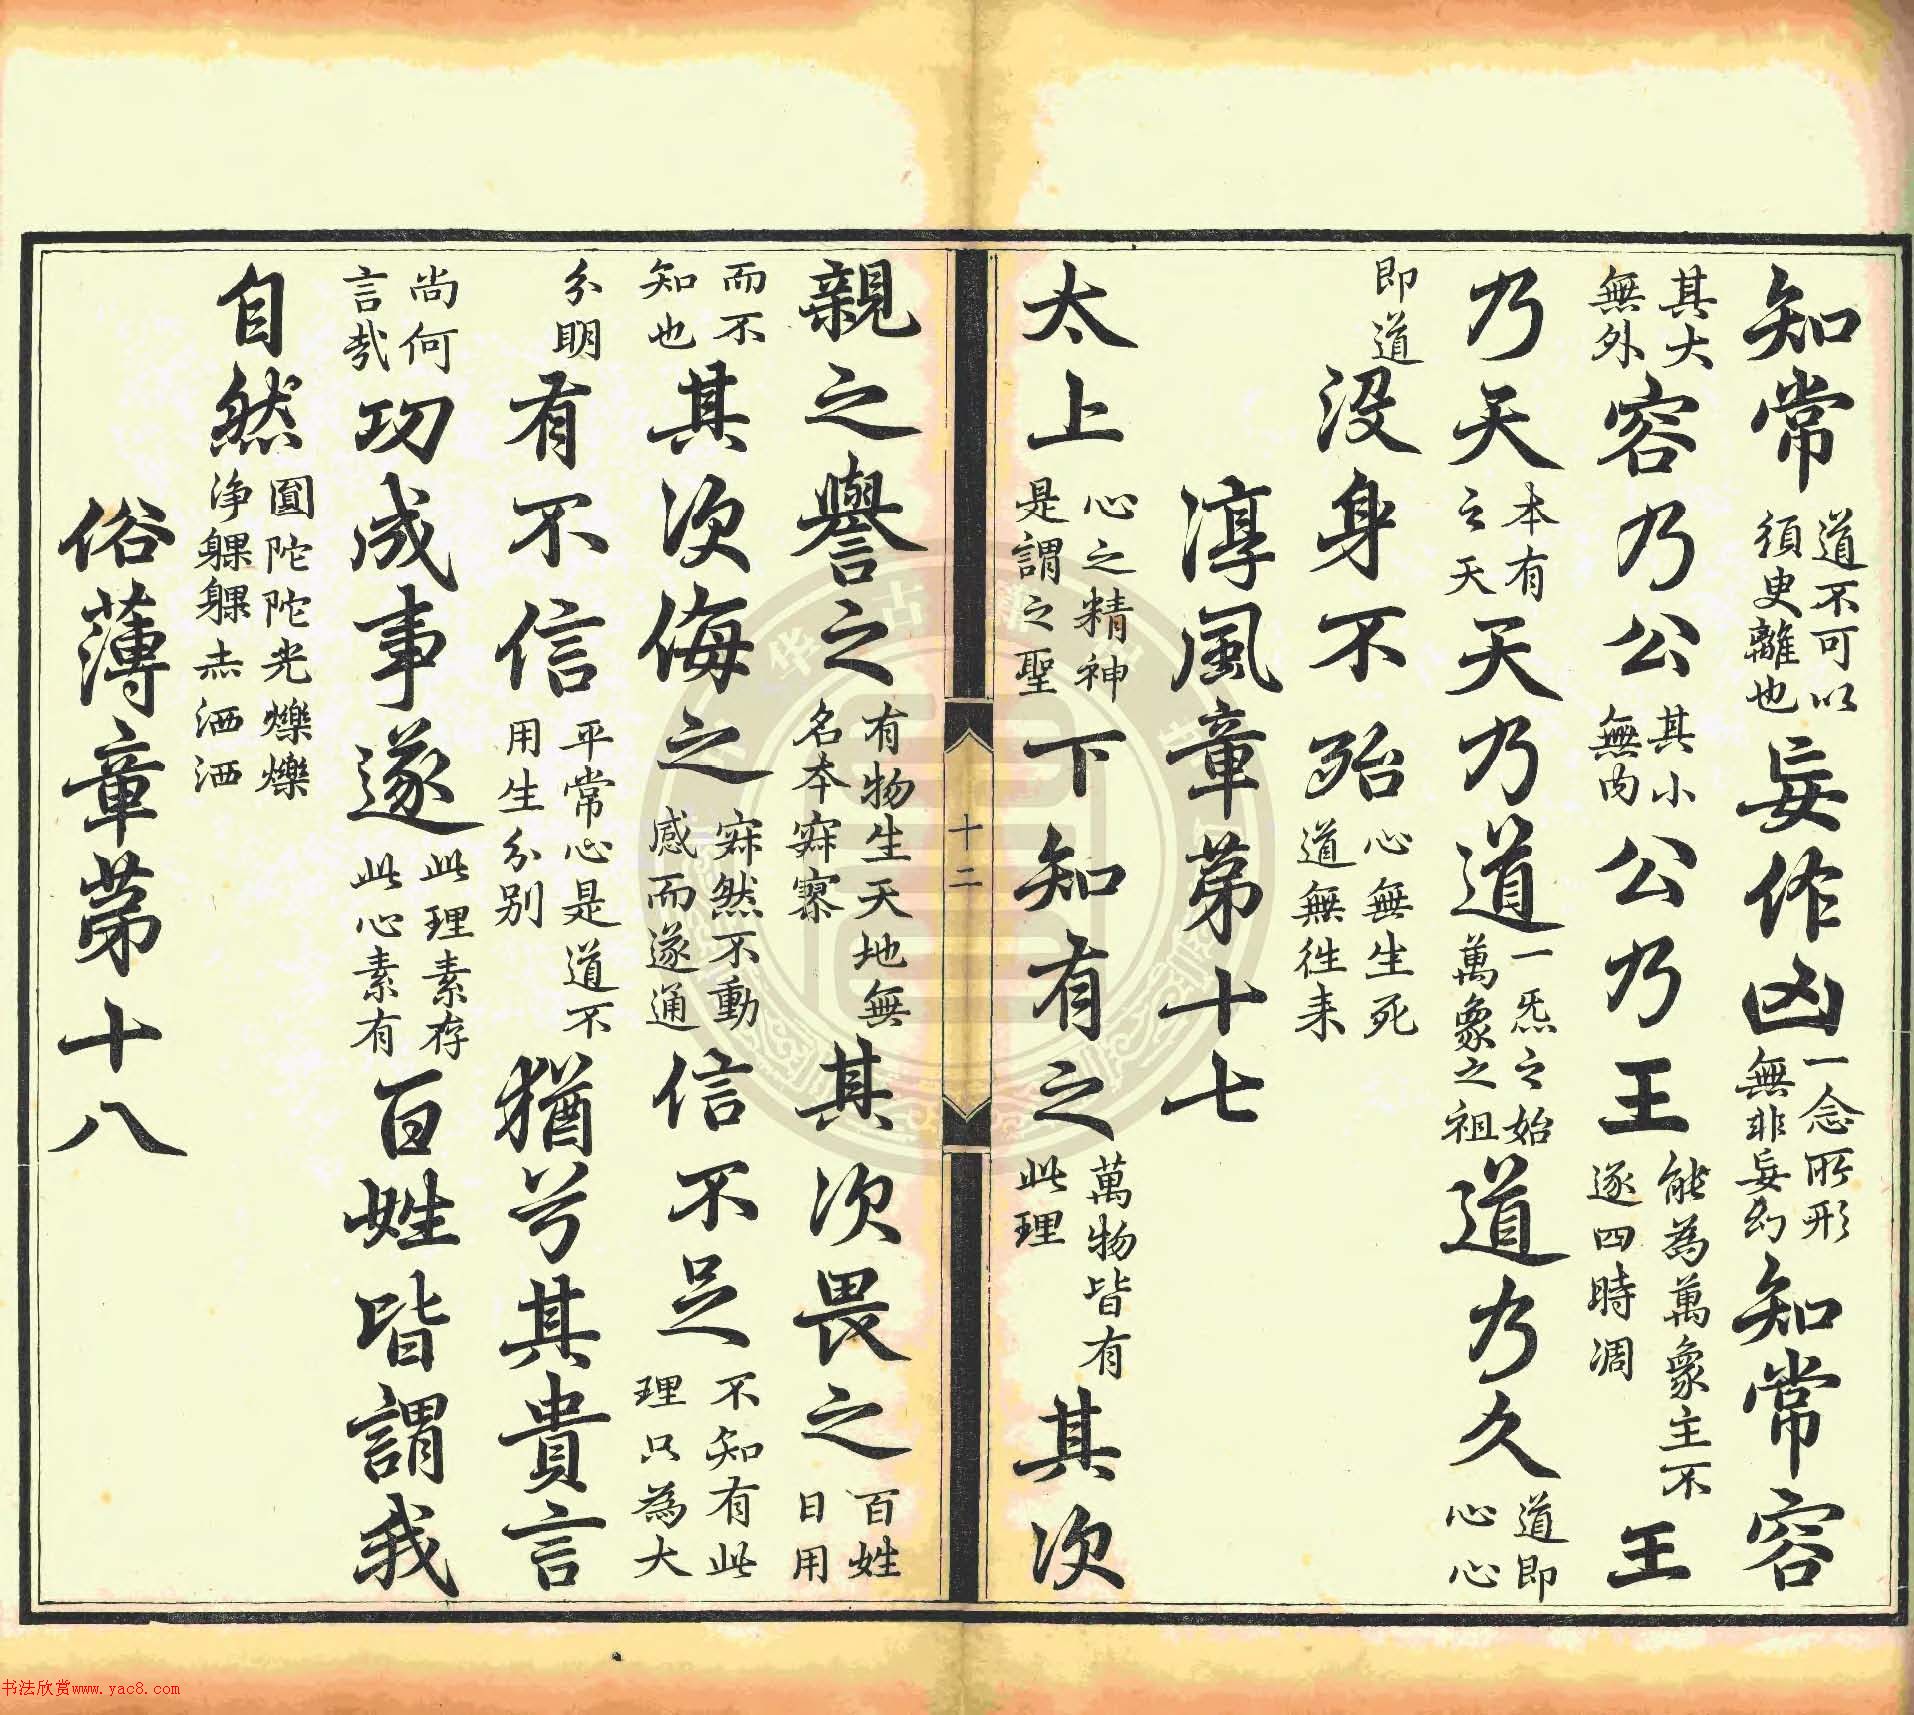 知常道不可以須臾離也妄作凶一念所形無非妄幻知常容
其大無外容乃公其小無內公乃王能為萬象主不逐四時凋王
乃天本有之天天乃道一炁之始萬象之祖道乃久道即心心
即道沒身不殆心無生死道無往来
淳風章第十七
太上心之精神是謂之聖下知有之萬物皆有此理其次
十二
親之譽之有物生天地無名本寂寥其次畏之百姓日用
而不知也其次侮之寂然不動感而遂通信不足不知有此理只為大
分明有不信平常心是道不用生分别猶兮其貴言
尚何言哉功成事遂此理素存此心素有百姓皆謂我
自然圓陀陀光爍爍淨躶躶赤洒洒
俗薄章第十八
书法欣赏www.yac8.com